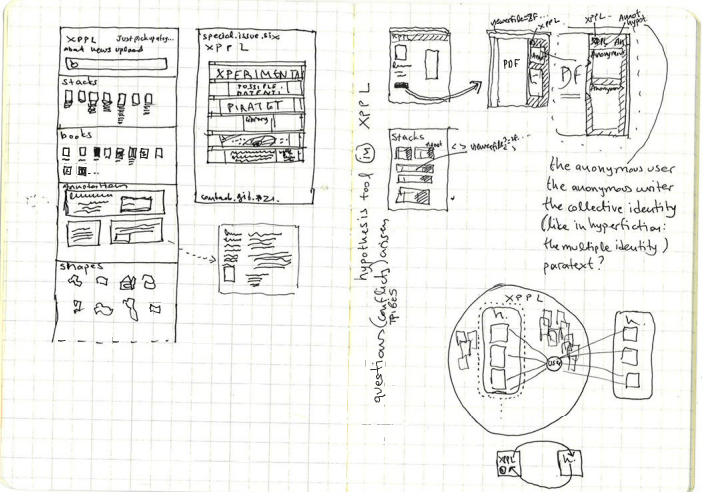 XPPL Just pick up any...
about news upload
stacks
books
annotation
shapes
special.issue.six
XPPL
XPERIMENTA
POSSIBLE
POTENTI
PIRATET
library
contact.git.#21.
XPPL
PDF
viewerfile=
XPPL
PDF
XPPL An
Anonymous
Anonymous
Annot
hypot
Stacks
hypothesis tool (in) XPPL
questions (conflicts) arisen
the anonymous user
the anonymous writer
the collective identity
(like in hyperfiction:
the multiple identity)
paratext?
XPPL
h.
user
h.
XPPL
h.